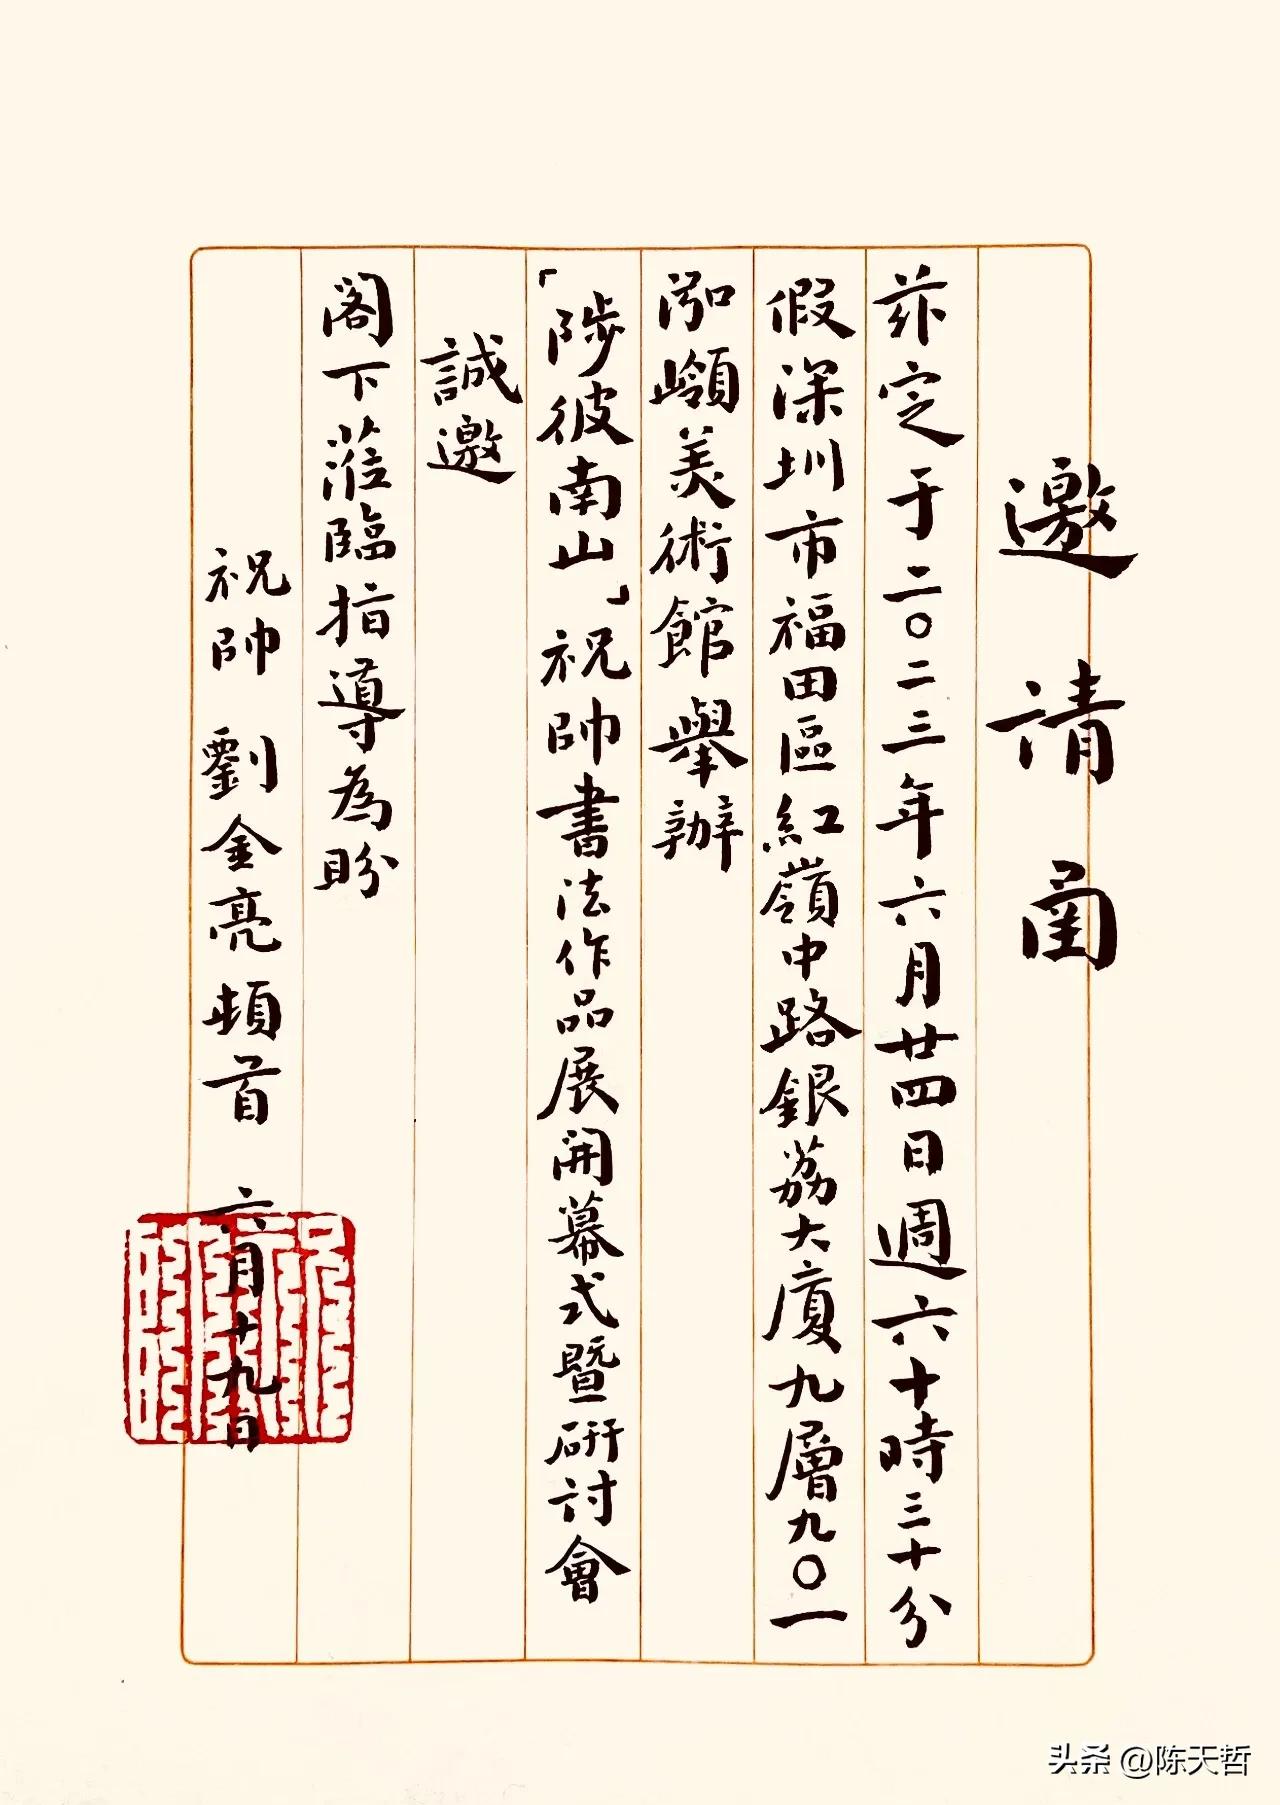 邀請函
茲定于二〇二三年六月廿四日週六十時三十分
假深圳市福田區紅嶺中路銀荔大廈九層九〇一
泓嶺美術館舉辦
「陟彼南山」祝帥書法作品展開幕式暨研討會
誠邀
閣下蒞臨指導為盼
祝帥 劉金亮頓首 六月十九日
头条 @陈天哲